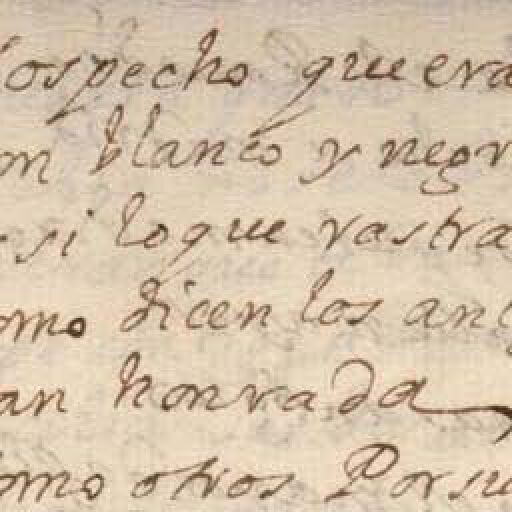 sospecho que era
on blanco y negr
si loque rastra
omo dicen los an
an honrada
como otros Porsu